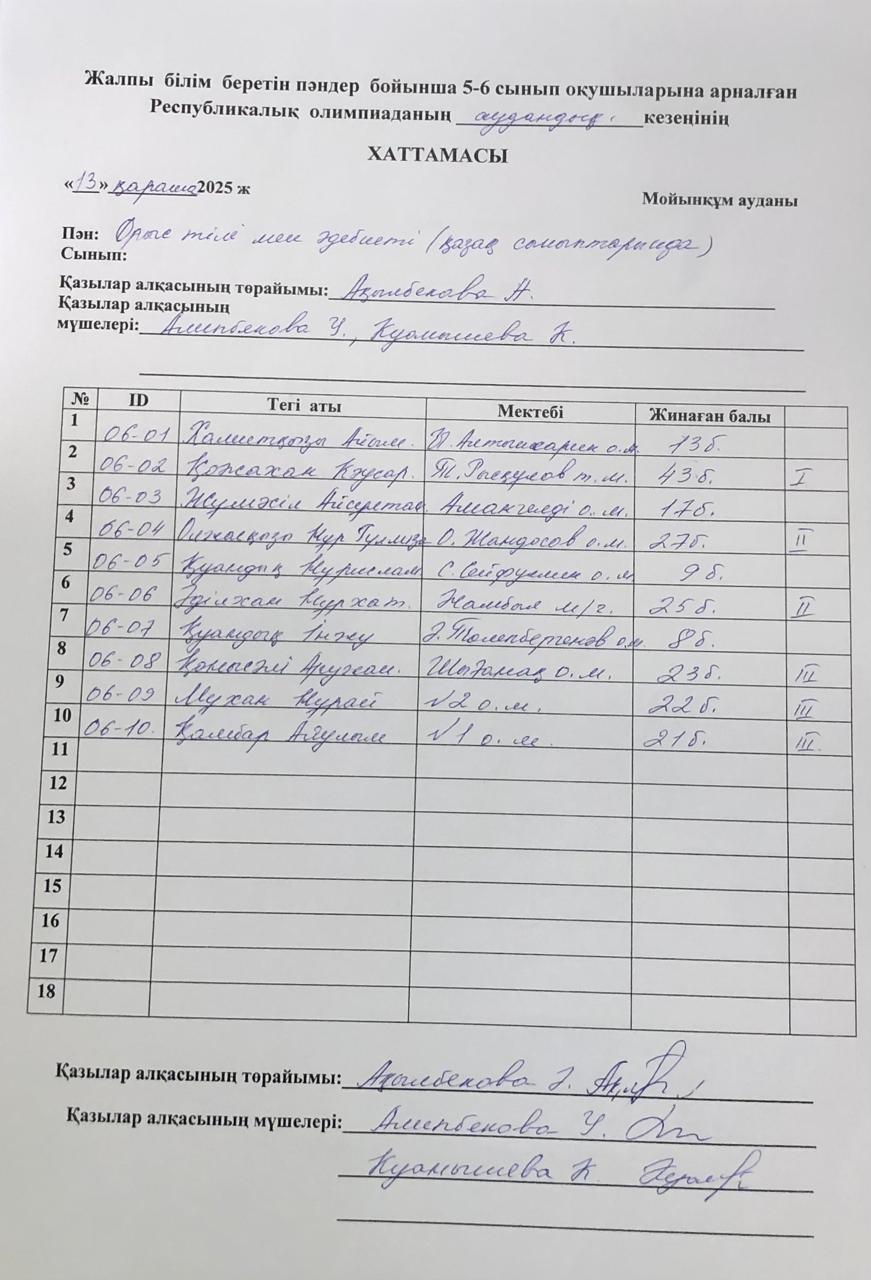 Жалпы білім беретін пәндер бойынша 5-6 сынып оқушыларына арналған
Республикалық олимпиаданың аудандық кезеңінің
ХАТТАМАСЫ
«13» қараша 2025 ж
Мойынқұм ауданы
Пән: Орыс тілі мен әдебиеті (қазақ сыныптарында)
Сынып:
Қазылар алқасының төрайымы: Ақылбекова Ә.
Қазылар алқасының
мүшелері: Алипбекова У., Куамышева К.
№ ID Тегі аты Мектебі Жинаған балы
1 06-01 Халметқызы Айым. Ы.Алтынсарин о.м. 13б.
2 06-02 Қожахан Кәусар. Т.Рысқулов т.м. 43б. I
3 06-03 Жұмәкіл Амангелді о.м. 17б.
4 06-04 Олжасқызы Нұр О.Жандосов о.м. 27б. II
5 06-05 Қуандық Нурислам С.Сейфуллин о.м 9б.
6 06-06 Әділхан Нұрхат. Жамбыл м/г. 25б. II
7 06-07 Қуандық Інжу Ә.Төлепбергенов о.м. 8б.
8 06-08 Қонысәлі Аружан. Шығанақ о.м. 23б. III
9 06-09 Мұхан Нұрай №2 о.м. 22б. III
10 06-10. Қамбар Айулым №1 о.м. 21б. III.
11
12
13
14
15
16
17
18
Қазылар алқасының төрайымы: Ақылбекова Ә.
Қазылар алқасының мүшелері: Алипбекова У.
Куамышева К.